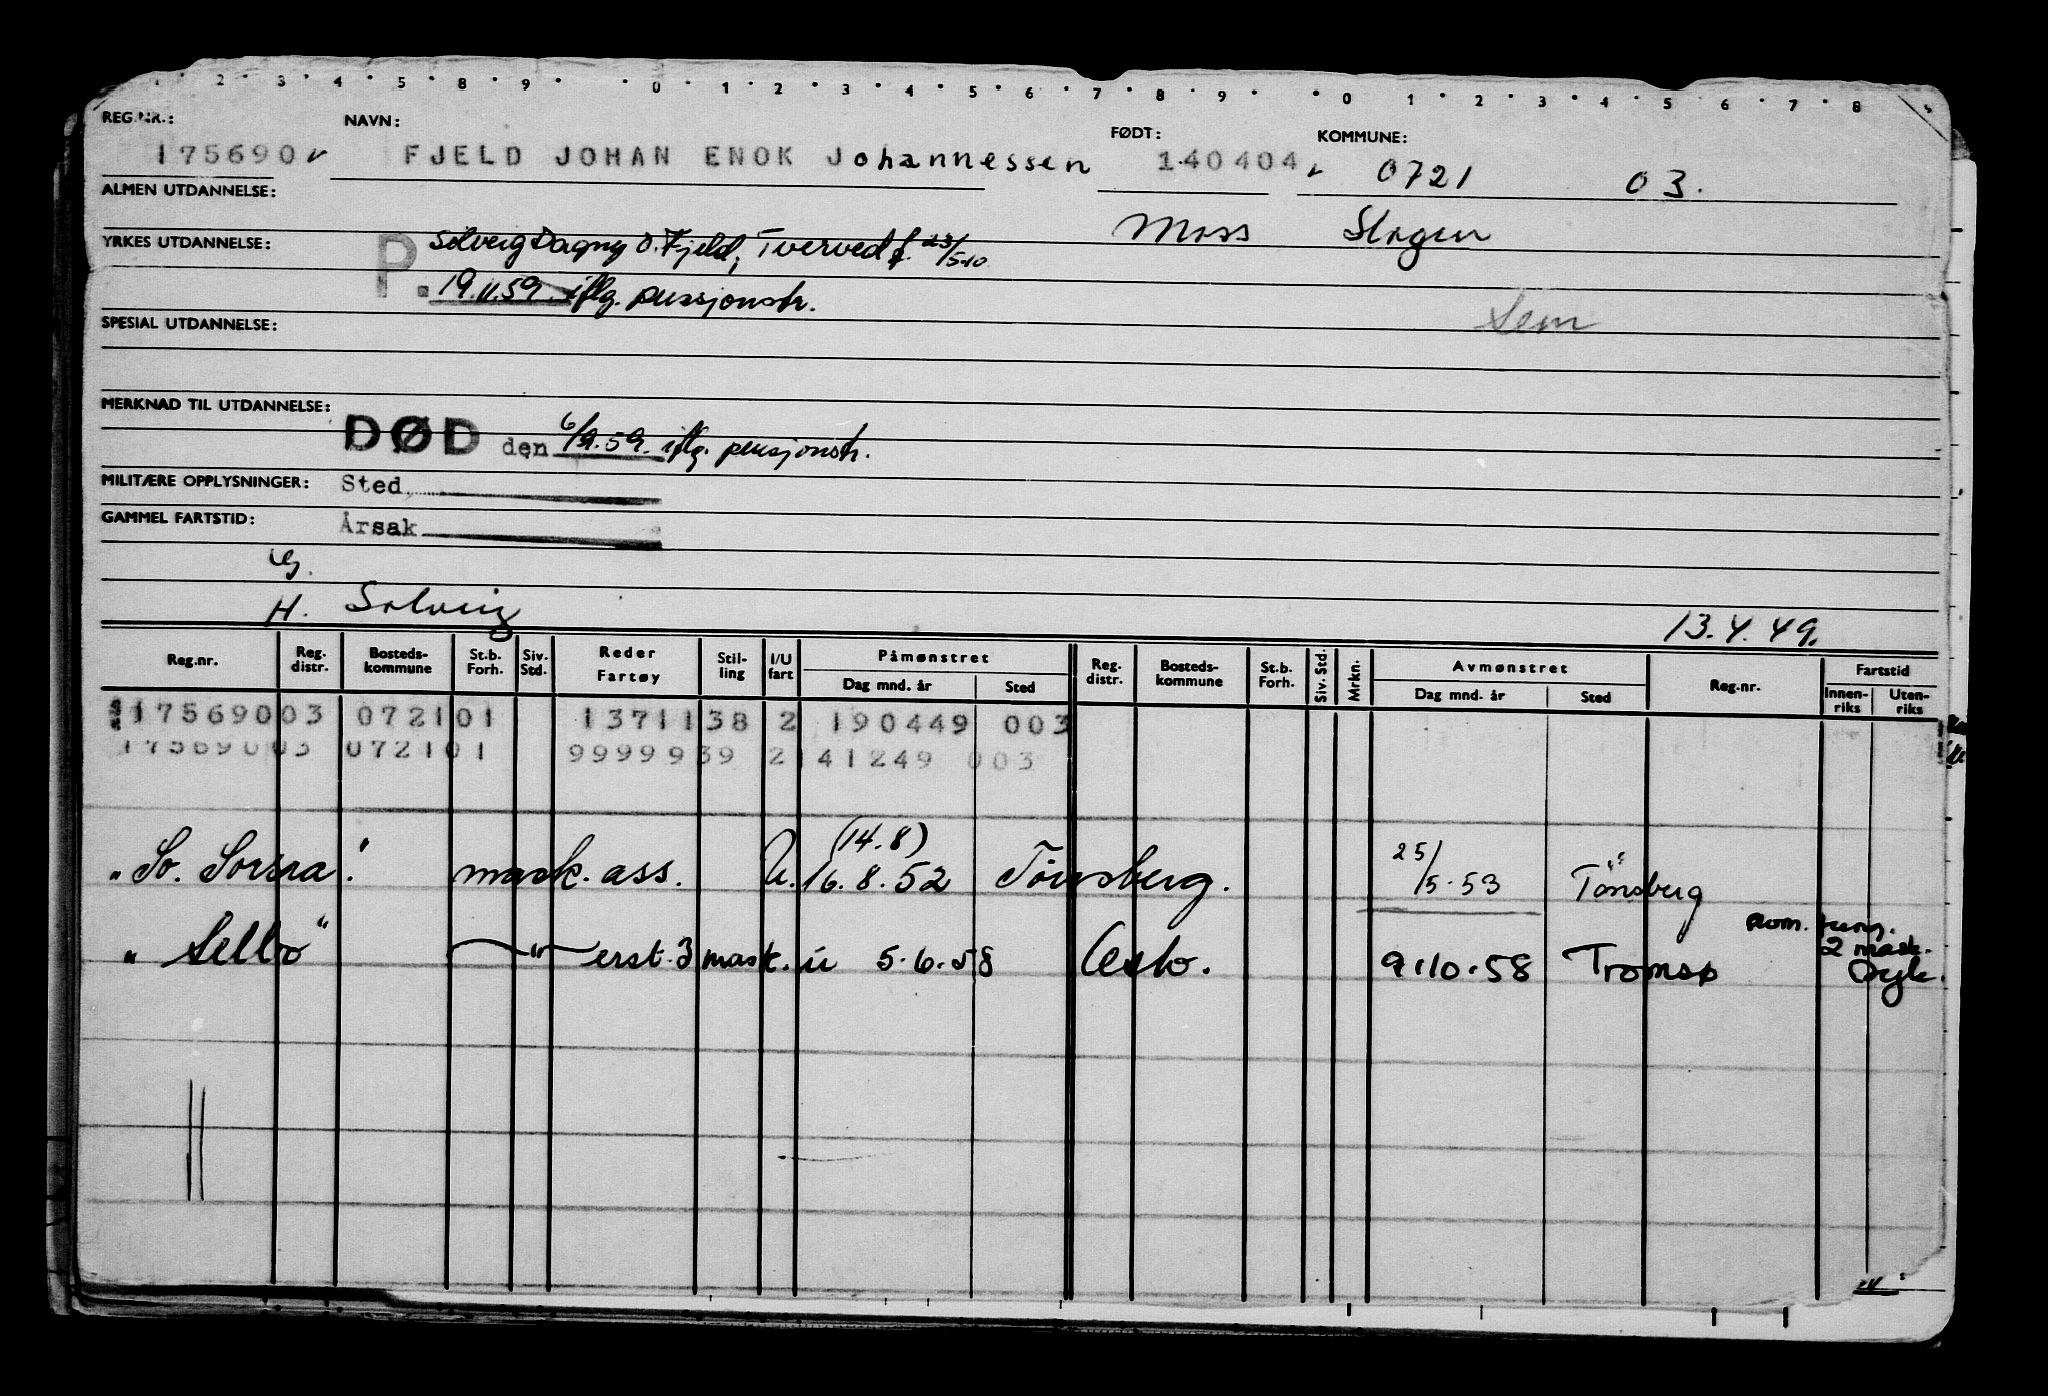 2 3 4 5 8 9 0 1 2 3 4 5 6 7 8 9 0 1 2 3 4 5 6 7 8
REG.NR.: NAVN: FØDT: KOMMUNE:
175690 FJELD JOHAN ENOK Johannessen 140404 0721 03.
ALMEN UTDANNELSE:
Moss Slagen
YRKES UTDANNELSE: P. Solveig Dagny O. Fjeld, Tverved f. 23/5-10
19.11.59 iflg. pensjonstr.
Sem
SPESIAL UTDANNELSE:
MERKNAD TIL UTDANNELSE:
DØD den 6/9.59. iflg. pensjonstr.
MILITÆRE OPPLYSNINGER: Sted
GAMMEL FARTSTID: Årsak
G.
H. Solveig
13.4.49.
Reg.nr. Reg. distr. Bosteds-kommune St.b. Forh. Siv. Std. Reder Fartøy Stil-ling I/U fart Påmønstret Dag mnd. år Sted Reg. distr. Bosteds-kommune St.b. Forh. Siv. Std. Mrkn. Avmønstret Dag mnd. år Sted Reg.nr. Fartstid Innen-riks Uten-riks
17569003 072101 1371138 2 190449 003
17569003 072101 9999939 2 141249 003
(14.8)
"So. Sorsra". mask. ass. U. 16.8.52 Tönsberg. 25/5.53 Tönsberg
"Sello" " erst. 3 mask. u 5.6.58 Oslo. 9.10.58 Tromsø
2 mask.